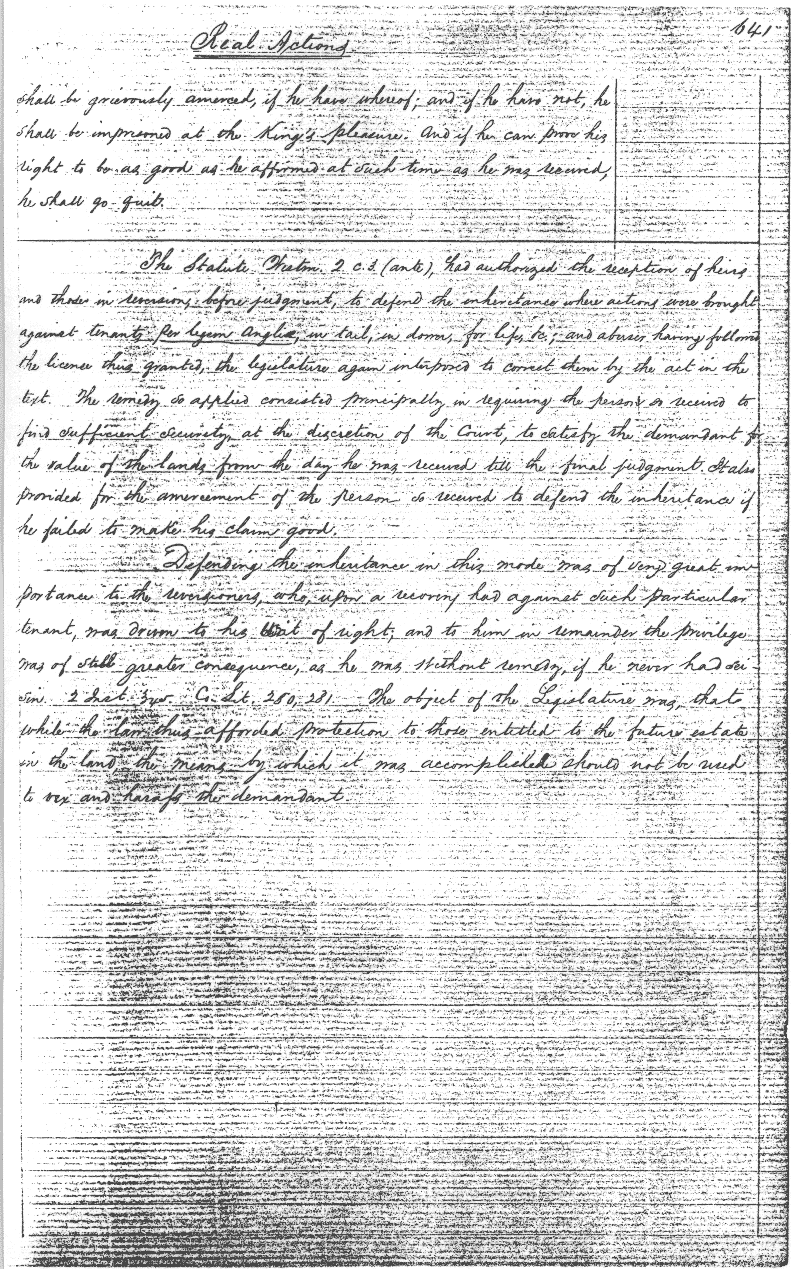 641
Real Actions
shall be grievously amerced, if he have whereof; and if he have not, he
shall be imprisoned at the King's pleasure. And if he can prove his
right to be as good as he affirmed at such time as he was received,
he shall go quit.
The Statute Westm. 2 c. 3. (ante), had authorized the reception of heirs
and those in reversion, before judgment, to defend the inheritance where actions were brought
against tenants per legem Angliæ, in tail, in dower, for life, &c.; and abuses having followed
the licence thus granted, the legislature again interposed to correct them by the act in the
text. The remedy so applied consisted principally in requiring the person so received to
find sufficient security, at the discretion of the Court, to satisfy the demandant for
the value of the lands from the day he was received till the final judgment. It also
provided for the amercement of the person so received to defend the inheritance if
he failed to make his claim good.
Defending the inheritance in this mode was of very great im-
portance to the reversioners, who, upon a recovery had against such particular
tenant, was driven to his Writ of right; and to him in remainder the privilege
was of still greater consequence, as he was without remedy, if he never had sei-
sin. 2 Inst. Co. Lit. 280, 281. The object of the Legislature was, that
while the law thus afforded protection to those entitled to the future estate
in the land, the means by which it was accomplished should not be used
to vex and harass the demandant.